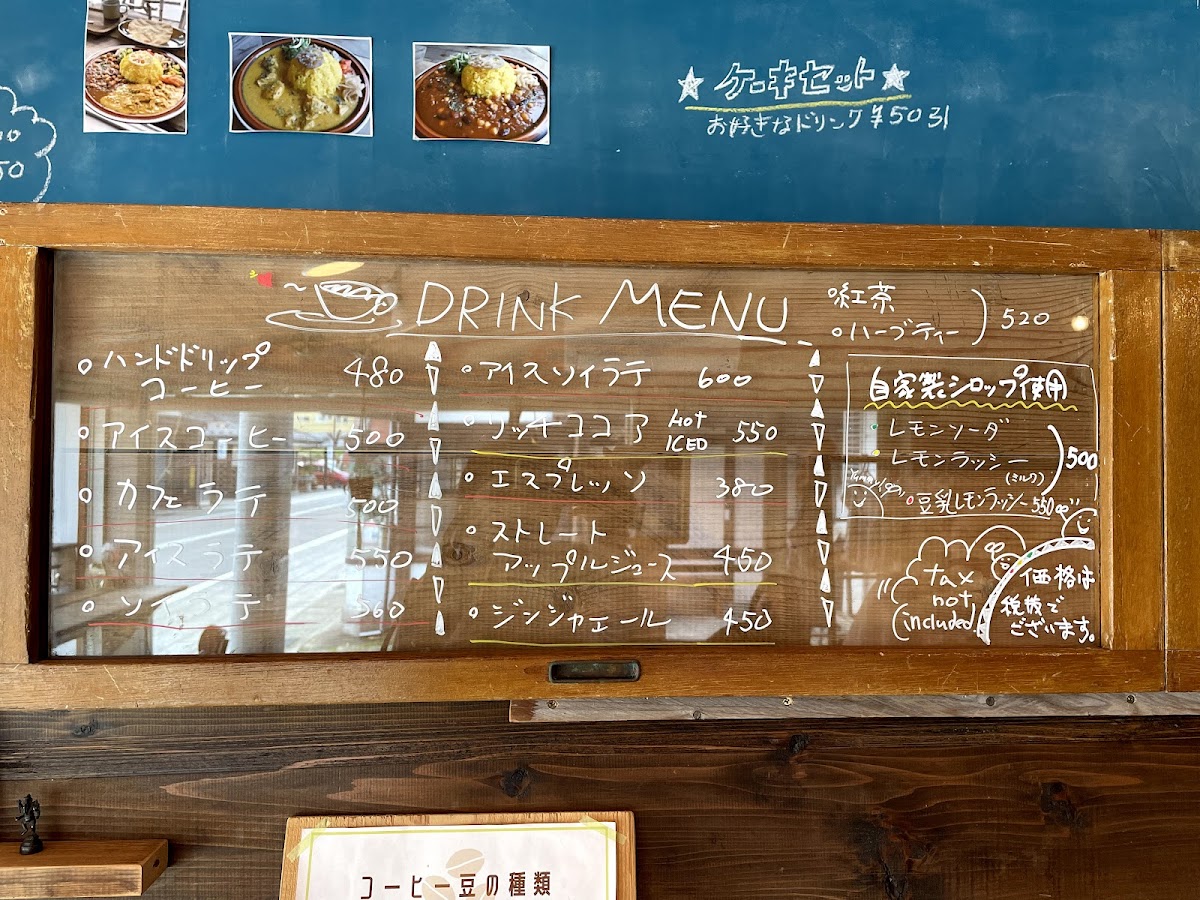 ★ケーキセット★
お好きなドリンク¥50引
DRINK MENU
○ハンドドリップ
コーヒー 480
○アイスコーヒー 500
○カフェラテ 500
○アイスラテ 550
○ソイラテ 560
○アイスソイラテ 600
○リッチココア HOT ICED 550
○エスプレッソ 380
○ストレート
アップルジュース 450
○ジンジャエール 450
○紅茶
○ハーブティー 520
自家製シロップ使用
レモンソーダ
レモンラッシー 500
(ミルク)
豆乳レモンラッシー 550
tax
not
included
価格は
税抜で
ございます。
コーヒー豆の種類